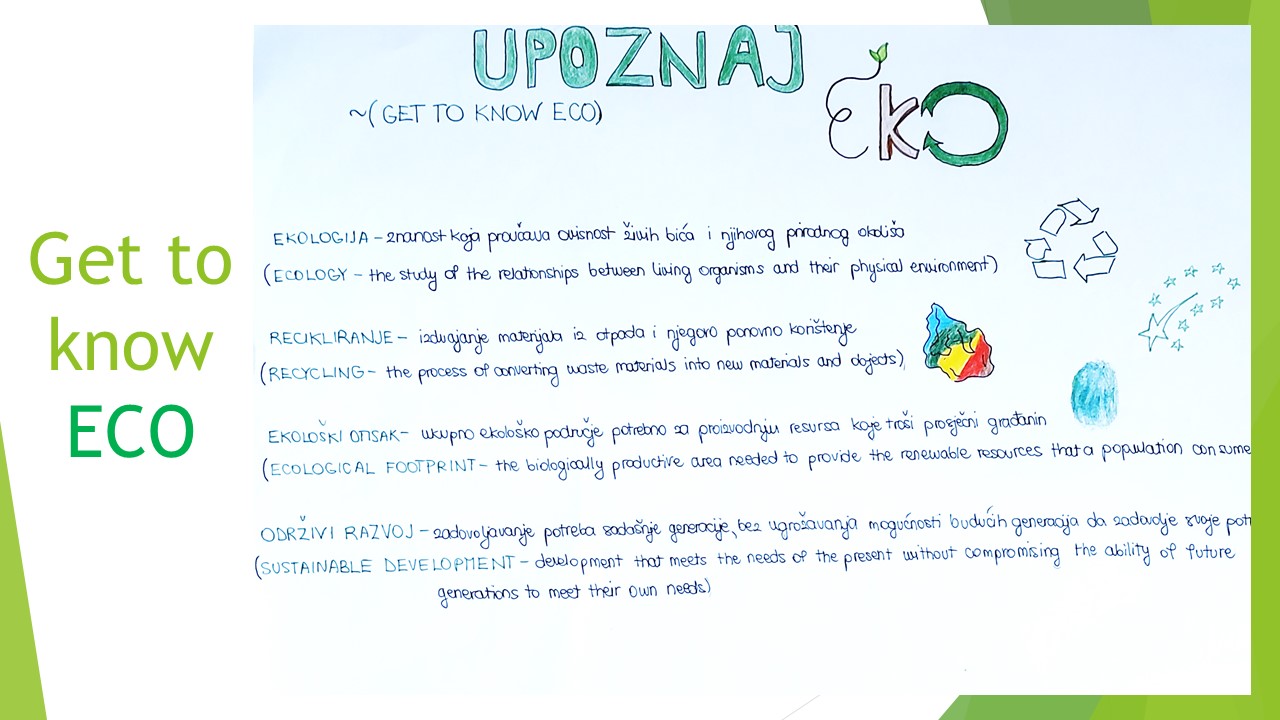 Get to
know
ECO
UPOZNAJ
EkO
~(GET TO KNOW ECO)
EKOLOGIJA – znanost koja proučava ovisnost živih bića i njihovog prirodnog okoliša
(ECOLOGY – the study of the relationships between living organisms and their physical environment)
RECIKLIRANJE – izdvajanje materijala iz otpada i njegovo ponovno korištenje
(RECYCLING – the process of converting waste materials into new materials and objects)
EKOLOŠKI OTISAK – ukupno ekološko područje potrebno za proizvodnju resursa koje troši prosječni građanin
(ECOLOGICAL FOOTPRINT – the biologically productive area needed to provide the renewable resources that a population consume
ODRŽIVI RAZVOJ – zadovoljavanje potreba sadašnje generacije, bez ugrožavanja mogućnosti budućih generacija da zadovolje svoje pot
(SUSTAINABLE DEVELOPMENT – development that meets the needs of the present without compromising the ability of future
generations to meet their own needs)